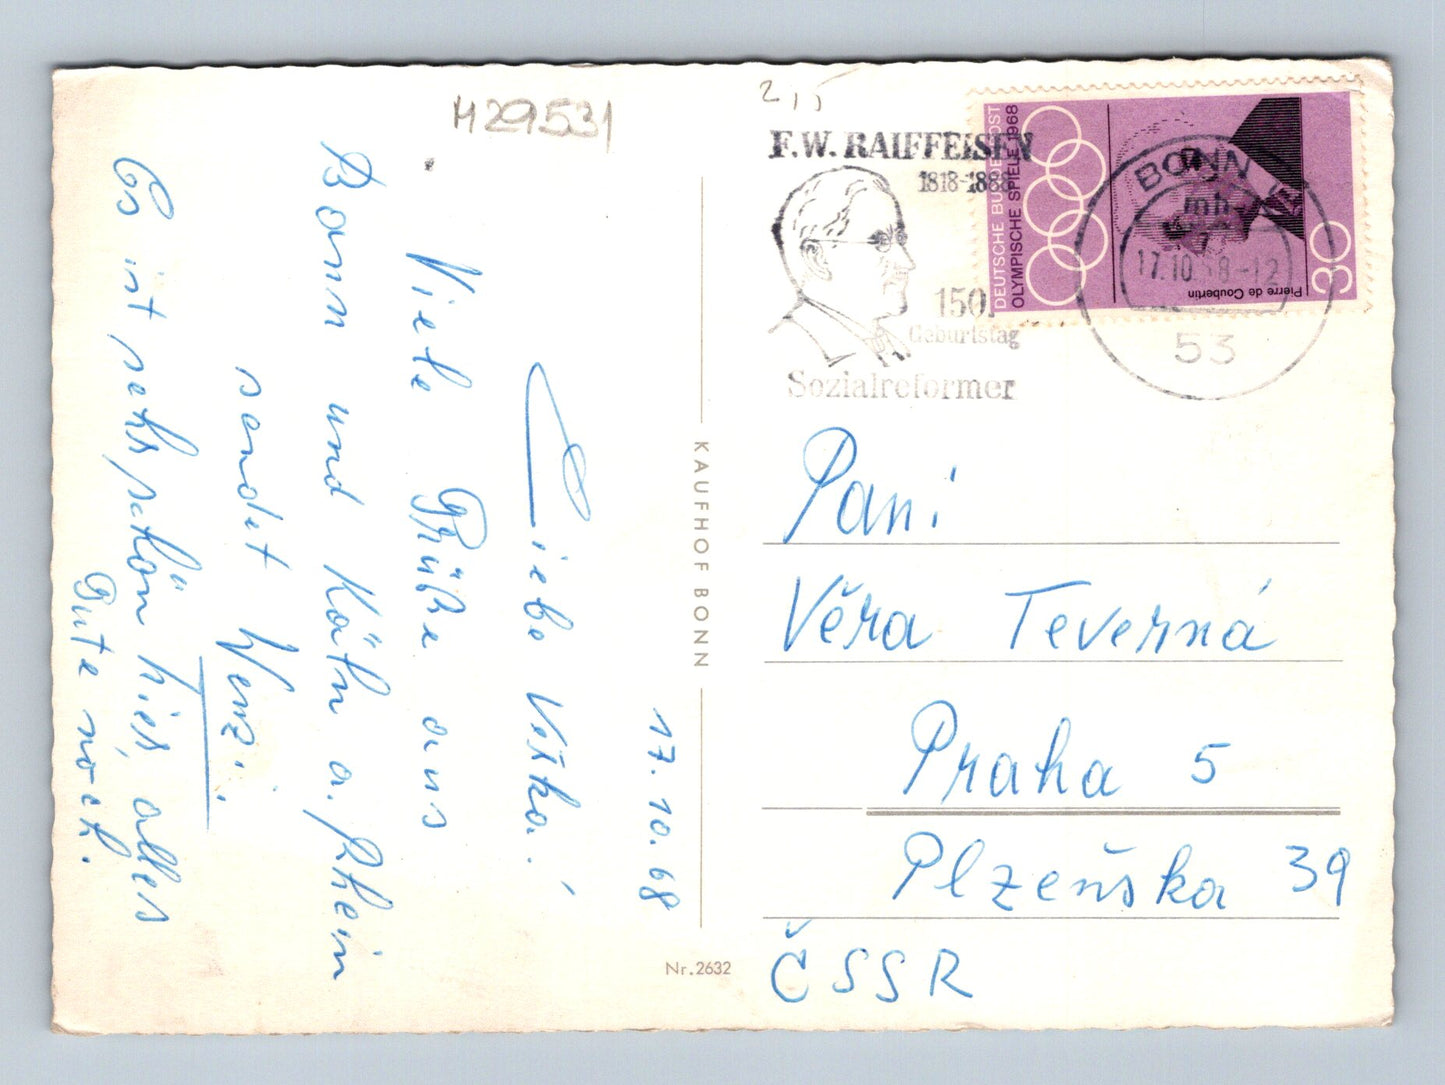 H29531
17.10.68
Liebe Věrka!
Viele Grüße aus
Bonn und Köln a. Rhein
sendet Wenzi.
Es ist sehr schön hier, alles
Gute noch.
KAUFHOF BONN
Nr. 2632
F.W. RAIFFEISEN
1818-1888
150.
Geburtstag
Sozialreformer
DEUTSCHE BUNDESPOST
OLYMPISCHE SPIELE 1968
Pierre de Coubertin
30
BONN
mh
17.10.68-12
53
Pani
Věra Teverná
Praha 5
Plzeňska 39
ČSSR